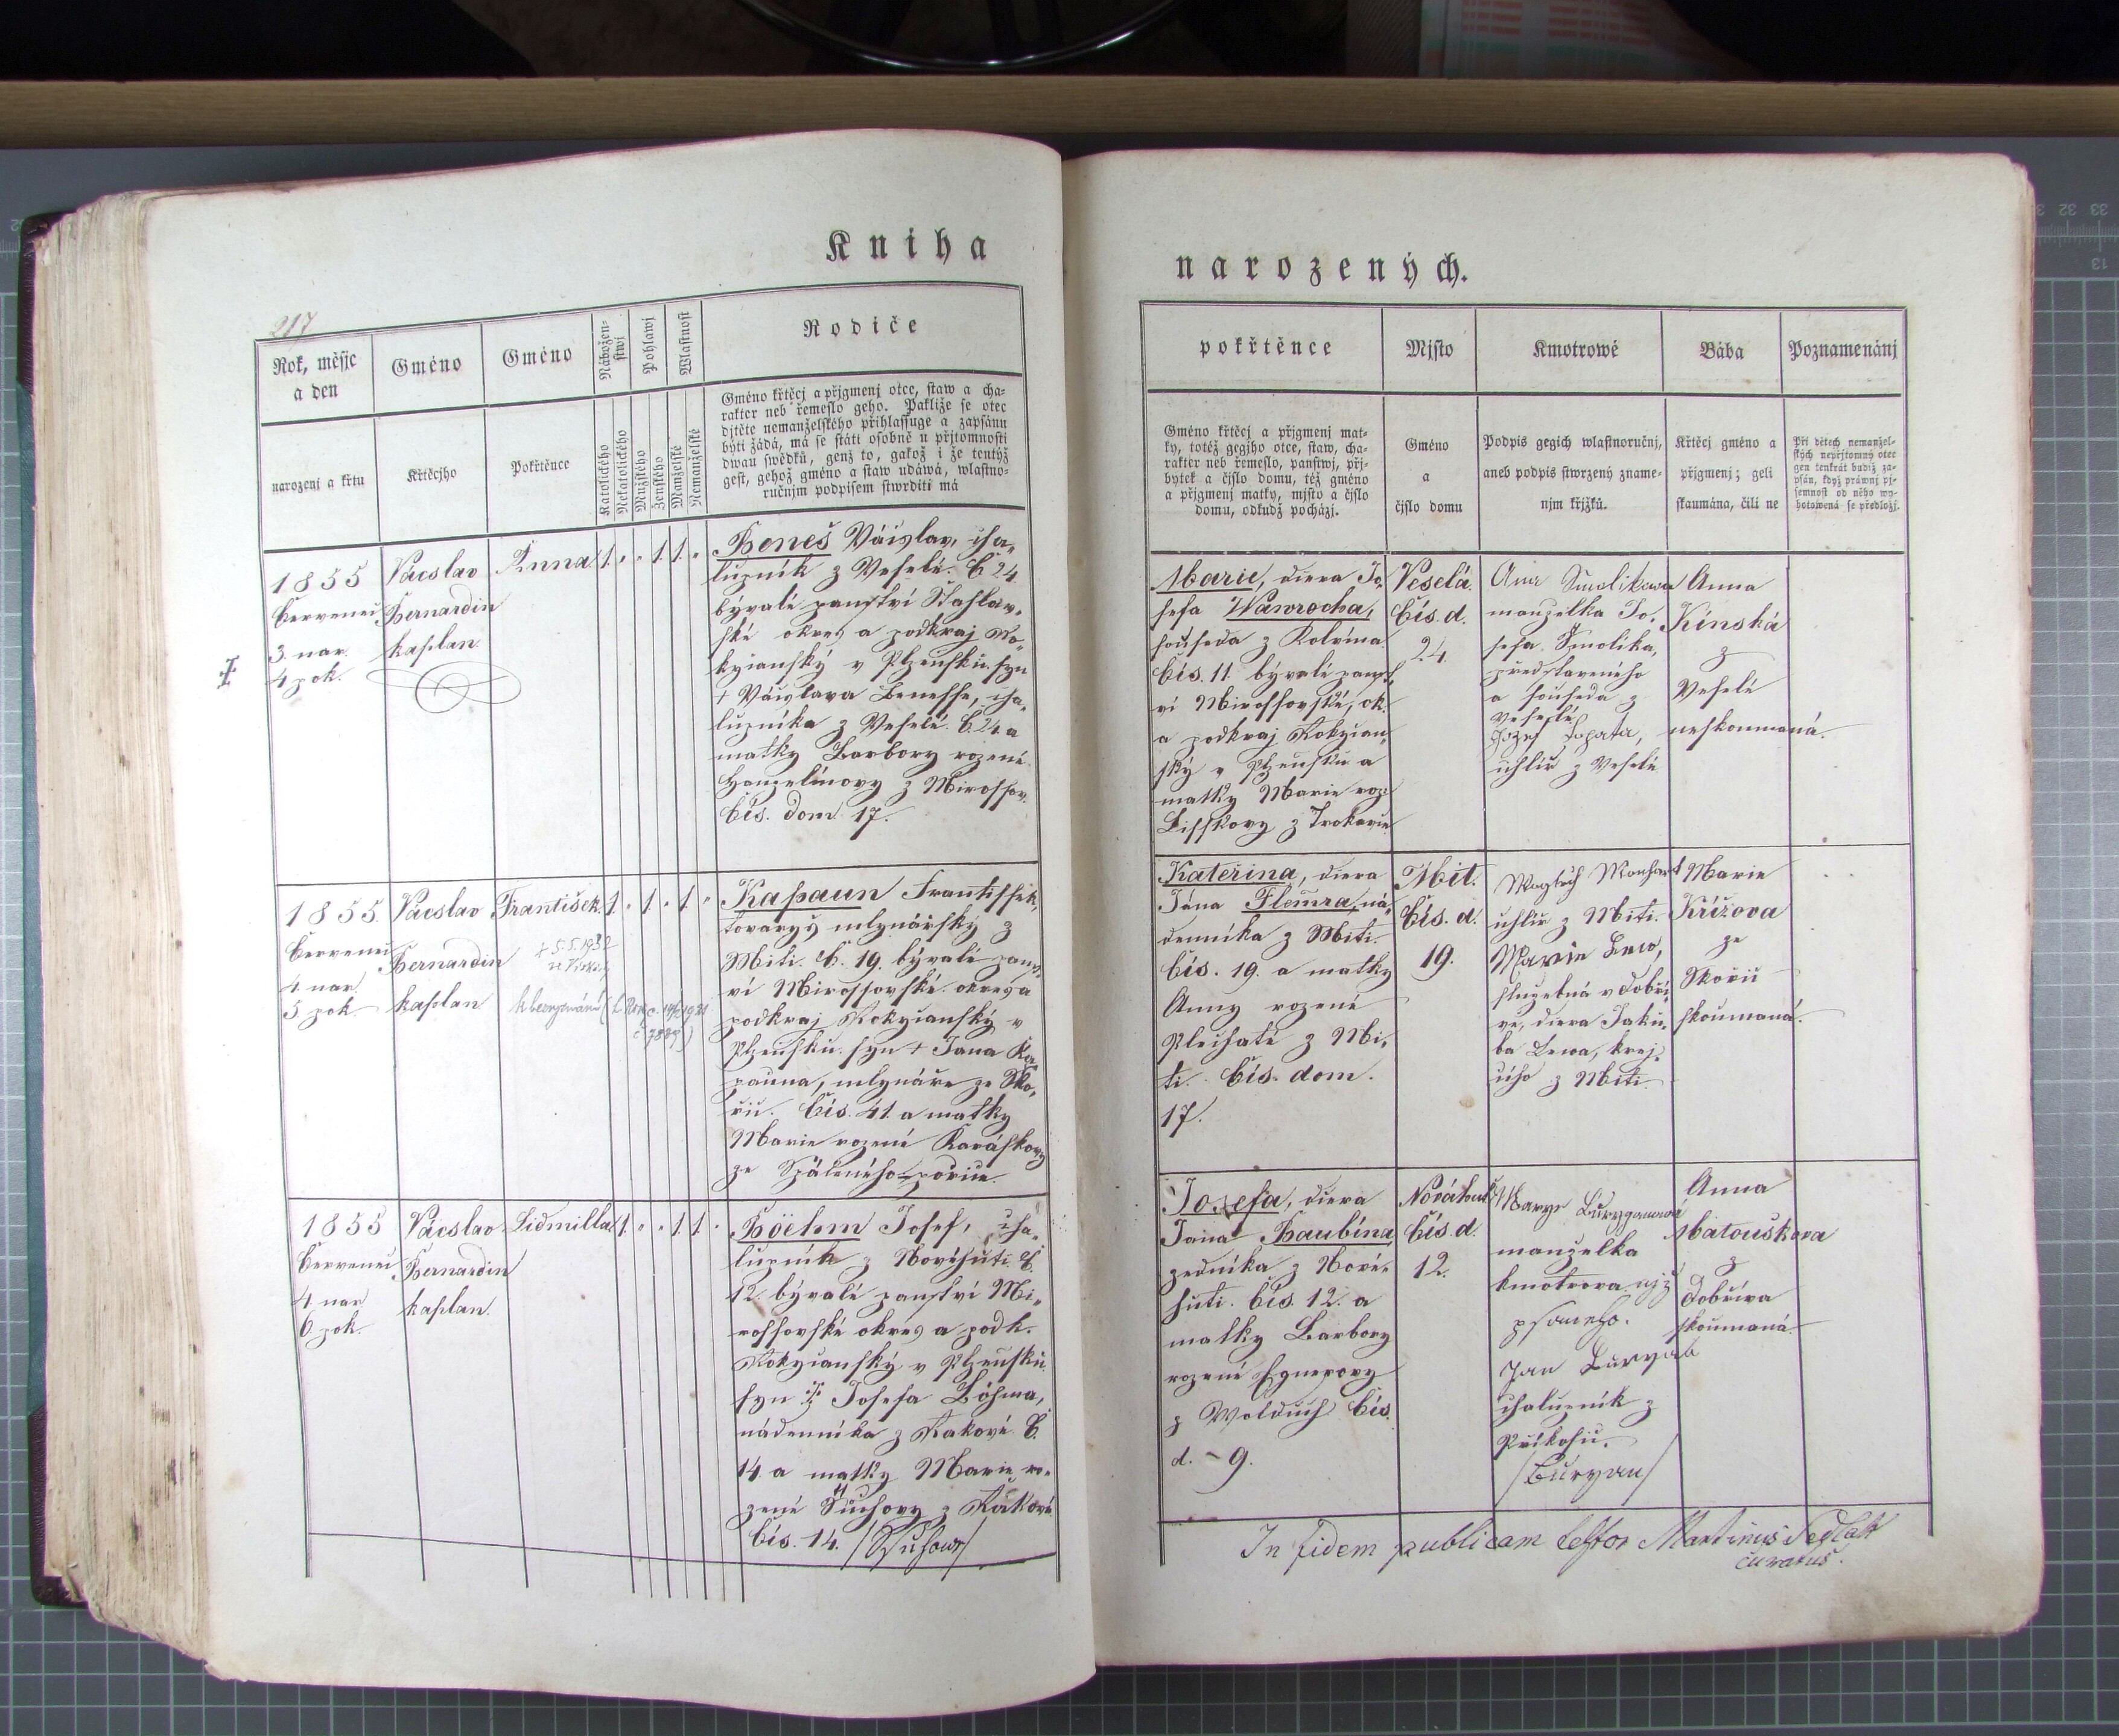 Kniha
217
Rok, měsjc
a den
Gméno
Gméno
Nábožen-
stwj
Pohlawj
Wlastnost
Rodiče
narozenj a křtu
Křtěcjho
Pokřtěnce
Katolického
Nekatolického
Mužského
Ženského
Manželské
Nemanželské
Gméno křtěcj a přjgmenj otce, staw a cha-
rakter neb řemeslo geho. Pakliže se otec
djtěte nemanželského přihlassuge a zapsánu
býti žádá, má se státi osobně u přjtomnosti
dwau swědků, genž to, gakož i že tentýž
gest, gehož gméno a staw udáwá, wlastno-
ručnjm podpisem stwrditi má
1855
Červenei
3. nar.
4 pok.
Václav
Bernardin
kaplan
Anna
1 " " 1 1 "
Beneš Václav, cha-
lupník z Veselé. č. 24
bývalé panství Stáhlav-
ské okres a podkraj Ro-
kycanský v Plzensku syn
+ Václava Benesse, cha-
lupníka z Veselé. č. 24 a
matky Barbory rozené
Hanzelínovy z Mirossov.
čís. dom 17.
1855.
Červenei
4 nar
5. pok
Václav
Bernardin
kaplan
František
+ 5.5.1932
1 " 1 " 1 "
Kapaun Frantissek,
tovaryš mlynářský z
Miti. č. 19. bývalé panst-
ví Mirossovské okres a
podkraj Rokycanský v
Plzensku. syn + Jana Ka-
pauna, mlynáře ze Sko-
řic. čís. 41. a matky
Marie rozené Karáskovy
ze Spáleného-poříce.
1855
Červenei
4 nar
6. pok.
Václav
Bernardin
kaplan.
Lidmilla
1 " " 1 1 "
Böehm Josef, cha-
lupník z Novéhuti. č.
12. bývalé panství Mi-
rossovské okres a podk.
Rokycanský v Plzensku.
syn Josefa Böhma,
nádenníka z Rakové. č.
14. a matky Marie ro-
zené Suchovy z Rakové
čís. 14.
narozených.
pokřtěnce
Mjsto
Kmotrowé
Bába
Poznamenánj
Gméno křtěcj a přjgmenj mat-
ky, totéž gegjho otce, staw, cha-
rakter neb řemeslo, panstwj, přj-
bytek a čjslo domu, též gméno
a přjgmenj matky, mjsto a čjslo
domu, odkudž pocházj.
Gméno
a
čjslo domu
Podpis gegich wlastnoručnj,
aneb podpis stwrzený zname-
njm křjžků.
Křtěcj gméno a
přjgmenj; geli
skaumána, čili ne
Při dětech nemanžel-
ských nepřjtomný otec
gen tenkrát budiž za-
psán, když práwnj pj-
semnost od něho wy-
hotowená se předložj.
Marie, dcera Jo-
sefa Wawrocha,
souseda z Kolvína
čís. 11 bývalé panst-
ví Mirossovské, ok.
a podkraj Rokycan-
ský v Plzensku a
matky Marie roz.
Lisskovy z Trokavce
Veselá.
Čís. d.
24.
Ana Smolikowa
manzelka Jo-
sefa Smolíka,
představeného
a souseda z
Veselé
Jozef Lopata,
uhlíř z Veselé
Anna
Kinská
z
Veselé
neskoumaná.
Kateřina, dcera
Jána Flemra, ná-
denníka z Miti.
čís. 19. a matky
Anny rozené
Pleichaté z Mi-
ti. čís. dom.
17.
Mit.
čís. d.
19.
uhlíř z Miti.
Marie Lewo,
služebná v Dobří-
ve, dcera Jaku-
ba Lewa, krej-
čího z Miti.
Marie
Křížova
ze
Skořic
skoumaná.
Josefa, dcera
Jana Haubína
zedníka z Nové-
huti. čís. 12. a
matky Barbory
rozené Egnerovy
z Wolduch čís.
d. - 9.
čís. d.
12.
manzelka
kmotrova njž
psaneho.
Jan Buryan
chalupník z
Příkosic.
/Buryan/
Anna
Matouškova
z
Dobříva
skoumaná.
In fidem publicam testor Martinus Sedlak
curatus.